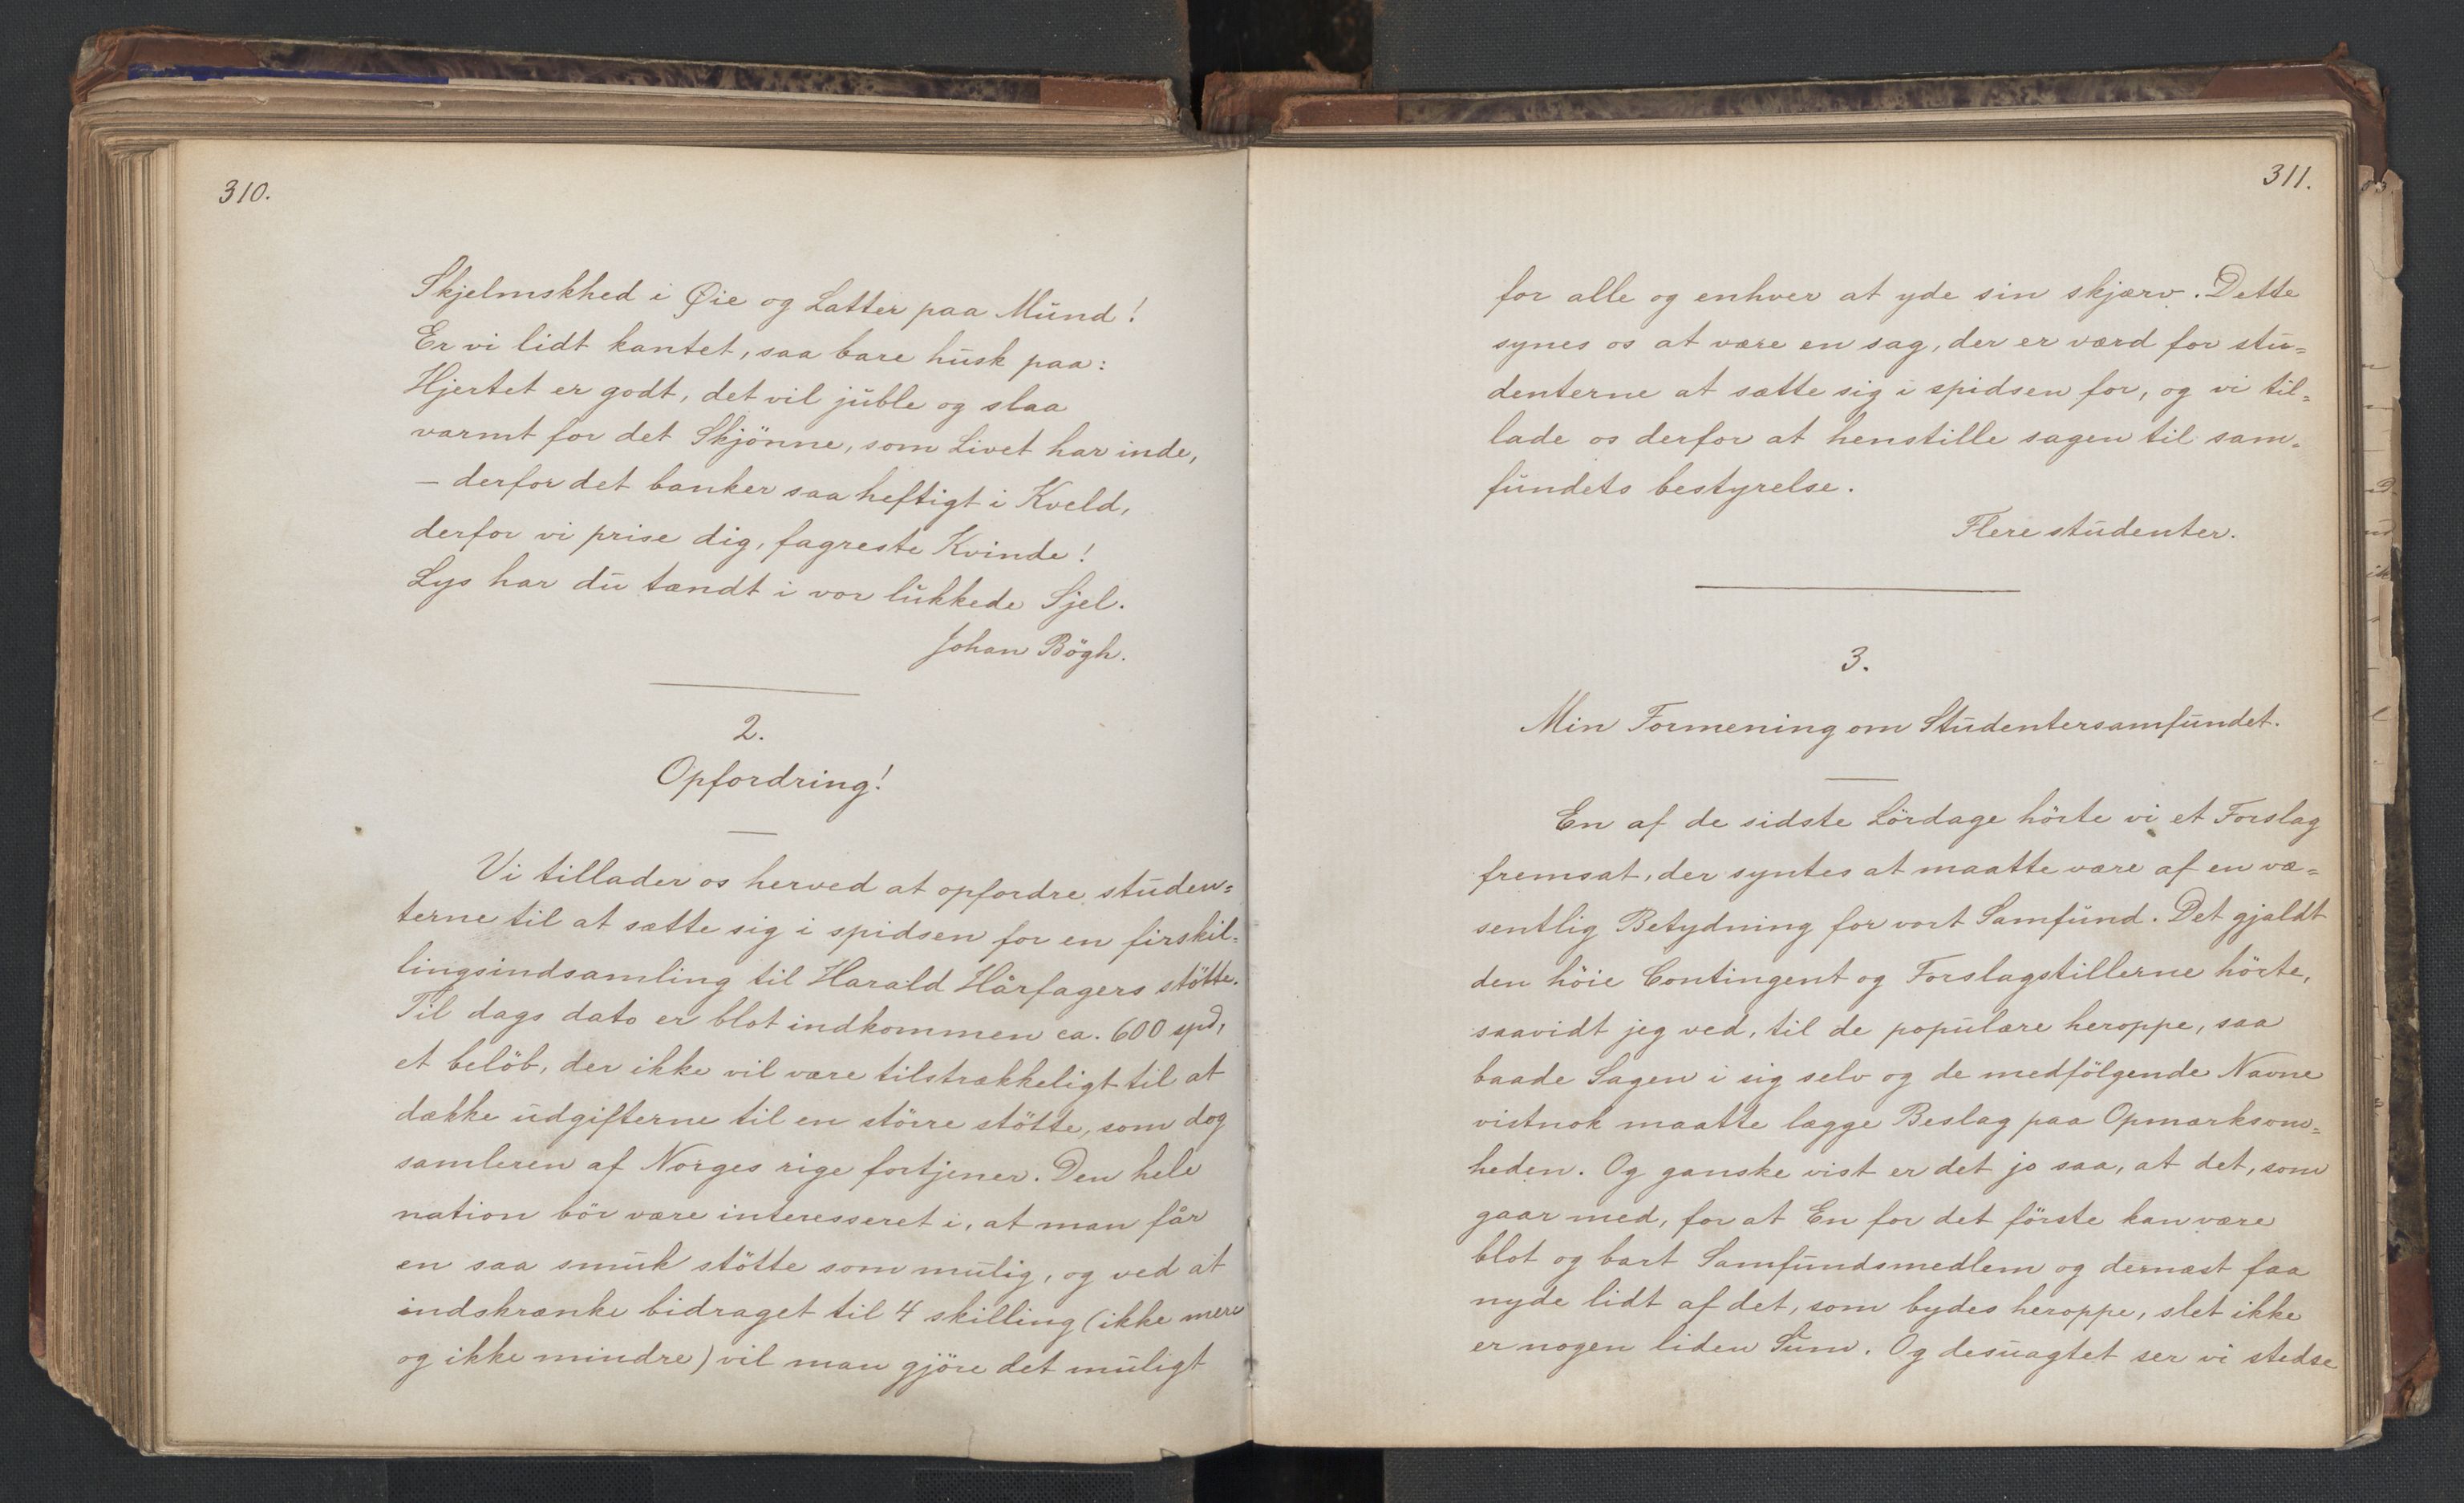 310.
Skjelmskhed i Øie og Latter paa Mund!
Er vi lidt kantet, saa bare husk paa:
Hjertet er godt, det vil juble og slaa
varmt for det Skjönne, som Livet har inde,
— derfor det banker saa heftigt i Kveld,
derfor vi prise dig, fagreste Kvinde!
Lys har du tændt i vor lukkede Sjel.
Johan Bögh.
2.
Opfordring!
Vi tillader os herved at opfordre studen=
terne til at sætte sig i spidsen for en firskil=
lingsindsamling til Harald Hårfagers stötte.
Til dags dato er blot indkommen ca. 600 spd,
et belöb, der ikke vil være tilstrækkeligt til at
dække udgifterne til en större stötte, som dog
samleren af Norges rige fortjener. Den hele
nation bör være interesseret i, at man får
en saa smuk stötte som mulig, og ved at
indskrænke bidraget til 4 skilling (ikke mere
og ikke mindre) vil man gjöre det muligt
311.
for alle og enhver at yde sin skjærv. Dette
synes os at være en sag, der er værd for stu=
denterne at sætte sig i spidsen for, og vi til=
lade os derfor at henstille sagen til sam=
fundets bestyrelse.
Flere studenter.
3.
Min Formening om Studentersamfundet.
En af de sidste Lördage hörte vi et Forslag
fremsat, der syntes at maatte være af en væ=
sentlig Betydning for vort Samfund. Det gjaldt
den höie Contingent og Forslagstillerne hörte,
saavidt jeg ved, til de populære heroppe, saa
baade Sagen i sig selv og de medfölgende Navne
vistnok maatte lægge Beslag paa Opmærksom=
heden. Og ganske vist er det jo saa, at det, som
gaar med, for at En for det förste kan være
blot og bart Samfundsmedlem og dernæst faa
nyde lidt af det, som bydes heroppe, slet ikke
er nogen liden Sum. Og desuagtet ser vi stedse